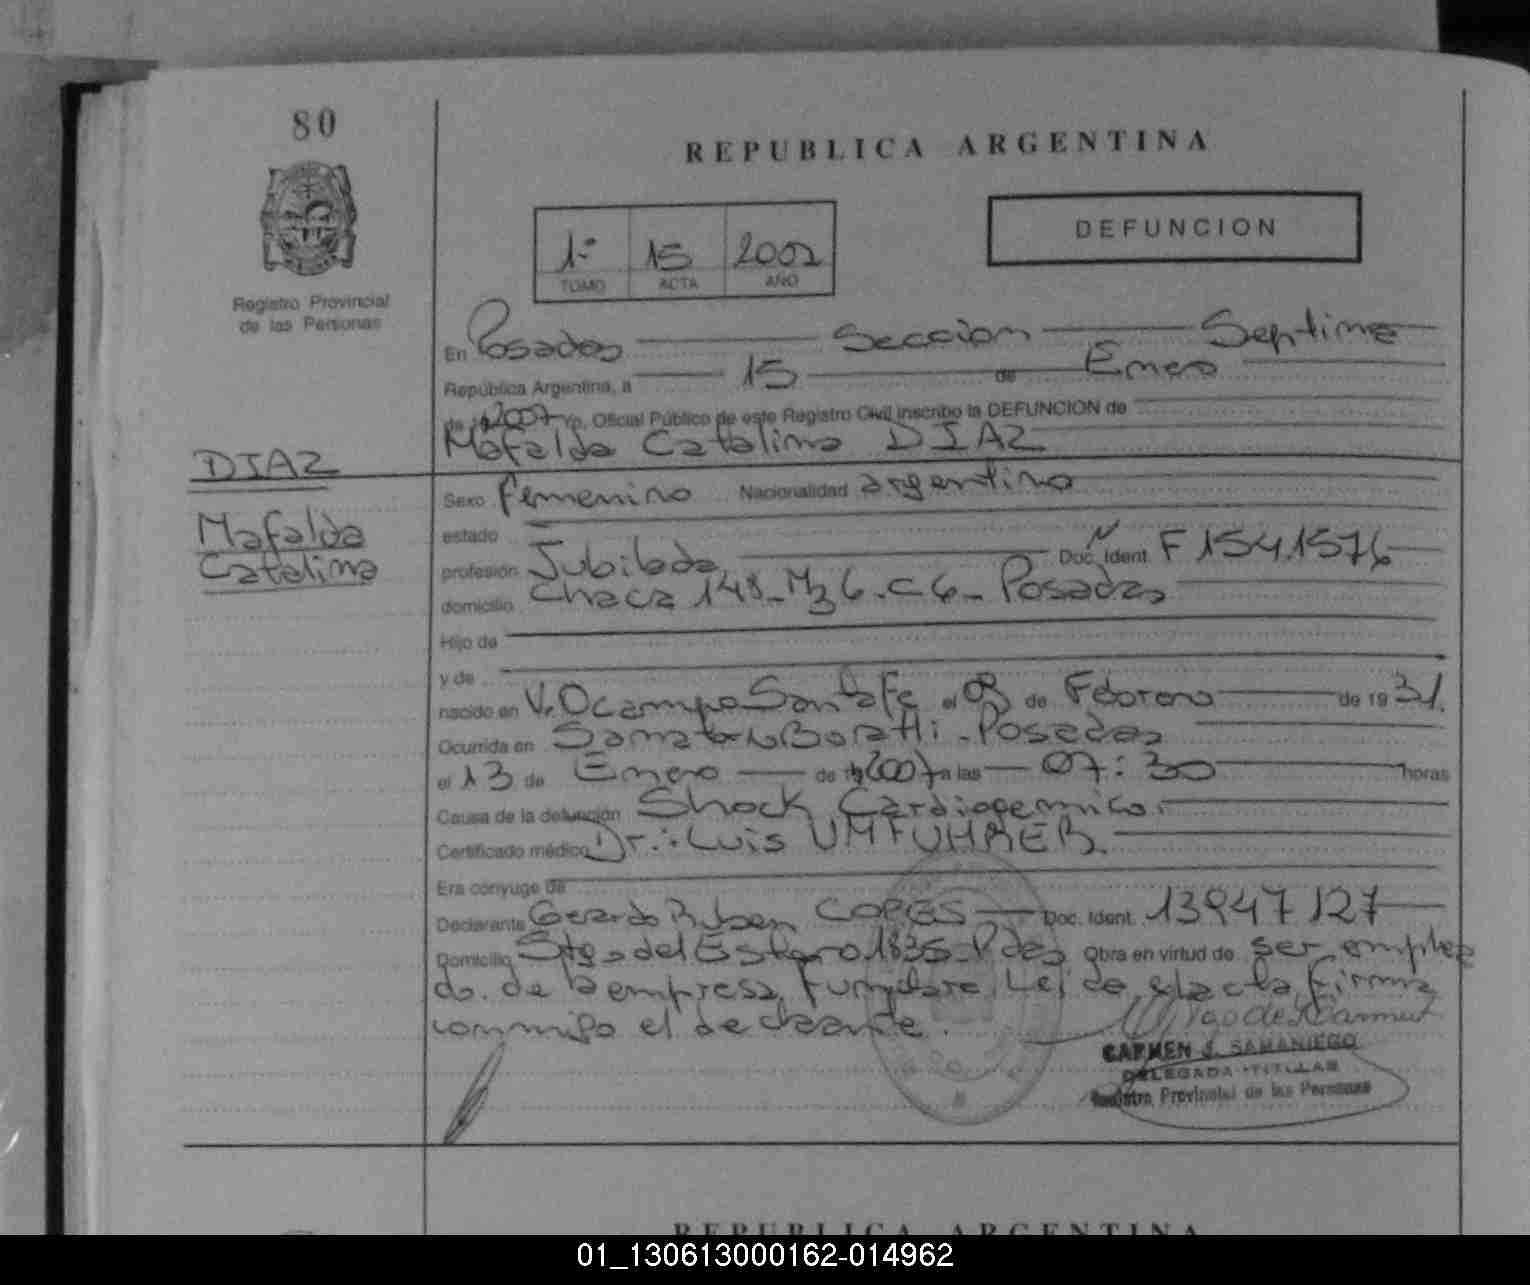 80
REPUBLICA ARGENTINA
DEFUNCION
1º 15 2007
TOMO ACTA AÑO
Registro Provincial
de las Personas
En Posadas Seccion Septima
República Argentina, a 15 de Enero
de 2007 Yo, Oficial Público de este Registro Civil inscribo la DEFUNCION de
Mafalda Catalina DIAZ
DIAZ
Mafalda
Catalina
Sexo Femenino Nacionalidad argentina
estado
profesión Jubilada Doc. Ident. F 1541576
domicilio Chaca 148_Mz 6_C 6_ Posadas
Hijo de
y de
nacido en V. Ocampo Santa Fe el 03 de Febrero de 19 31.
Ocurrida en Sanatorio Boratti - Posadas
el 13 de Enero de 2007 a las 07:30 horas
Causa de la defunción Shock Cardiogenico.
Certificado médico Dr.: Luis UMFUHRER.
Era cónyuge de
Declarante Gerardo Ruben COPES Doc. Ident. 13947127
Domicilio Stgo del Estero 1835_Pdas Obra en virtud de ser emplea
do. de la empresa Funebre. Leída el acta, firma
conmigo el declarante.
CARMEN J. SAMANIEGO
DELEGADA TITULAR
Registro Provincial de las Personas
REPUBLICA ARGENTINA
01_130613000162-014962